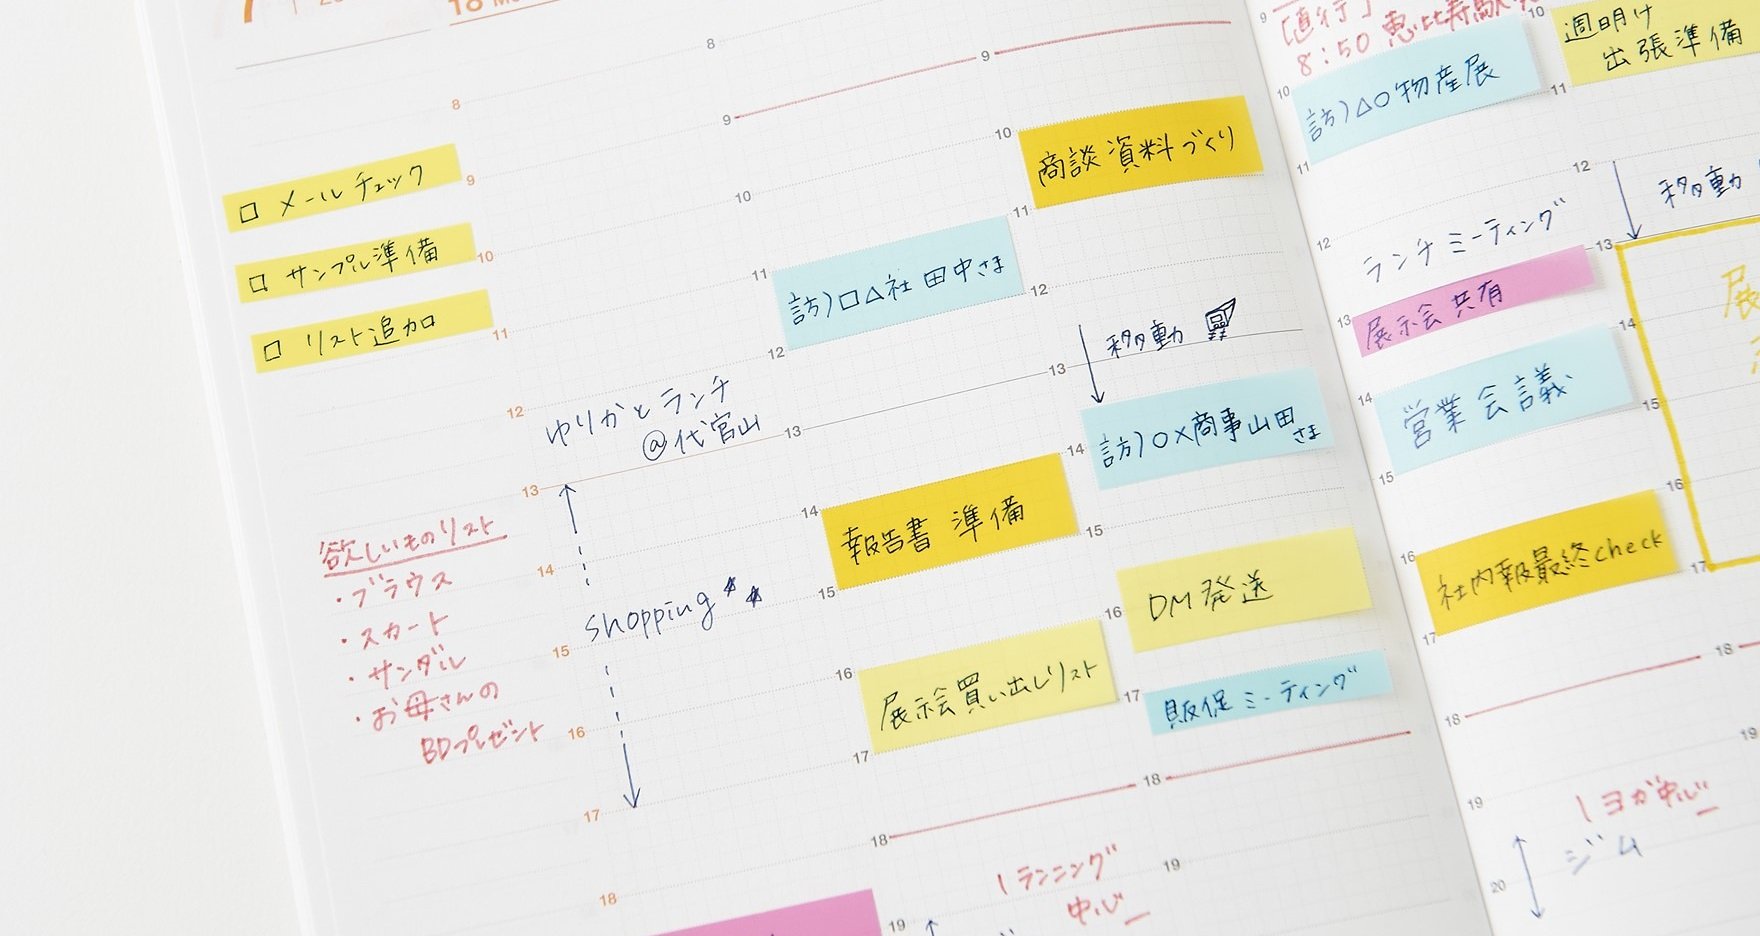 7
18
8
9
10
11
12
13
14
15
16
17
18
□ メールチェック
□ サンプル準備
□ リスト追加
ゆりかとランチ
@代官山
shopping
欲しいものリスト
・ブラウス
・スカート
・サンダル
・お母さんの
BDプレゼント
8
9
10
11
12
13
14
15
16
17
18
19
訪)□△社 田中さま
報告書 準備
展示会買い出しリスト
ランニング
中心
9
10
11
12
13
14
15
16
17
18
19
商談資料づくり
移動
訪)○×商事山田さま
DM発送
販促ミーティング
9
10
11
12
13
14
15
16
17
18
19
20
[直行]
8:50 恵比寿駅
訪)△○物産展
ランチミーティング
展示会共有
営業会議
社内報最終check
ヨガ中心
ジム
10
11
12
13
14
15
16
17
18
19
週明け
出張準備
移動
展